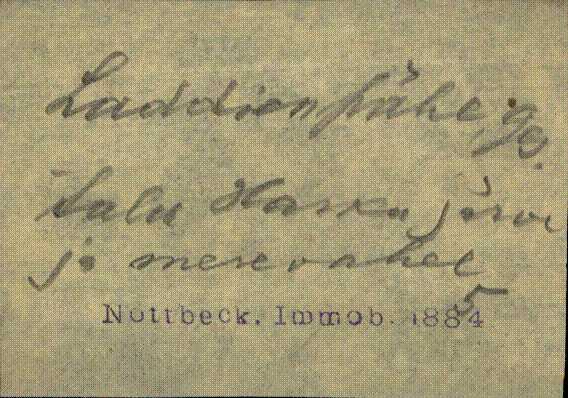 Laddion pähe,
talu Harku järve
ja mere vahel
Nottbeck. Immob. 1885